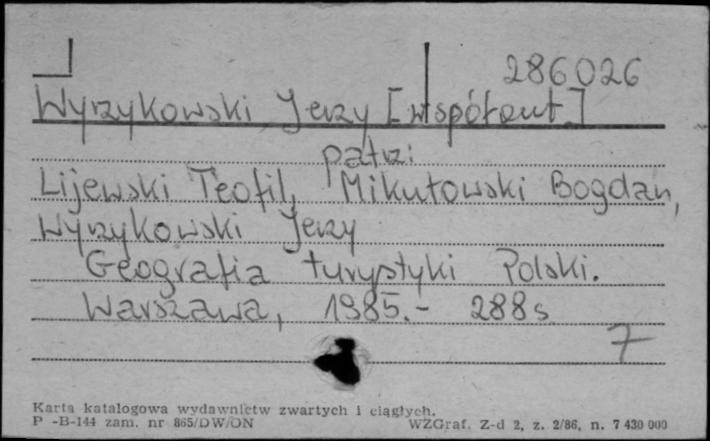 286026
Wyrzykowski Jerzy [współaut.]
patrz:
Lijewski Teofil, Mikułowski Bogdan,
Wyrzykowski Jerzy
Geografia turystyki Polski.
Warszawa, 1985.- 288s
7
Karta katalogowa wydawnictw zwartych i ciągłych.
P -B-144 zam. nr 865/DW/DN WZGraf. Z-d 2, z. 2/86, n. 7 430 000